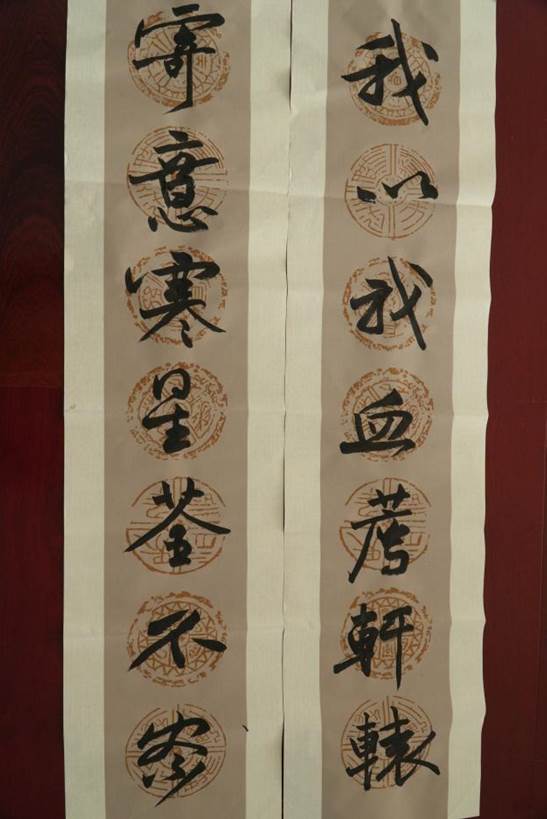 寄意寒星荃不察
我以我血薦軒轅